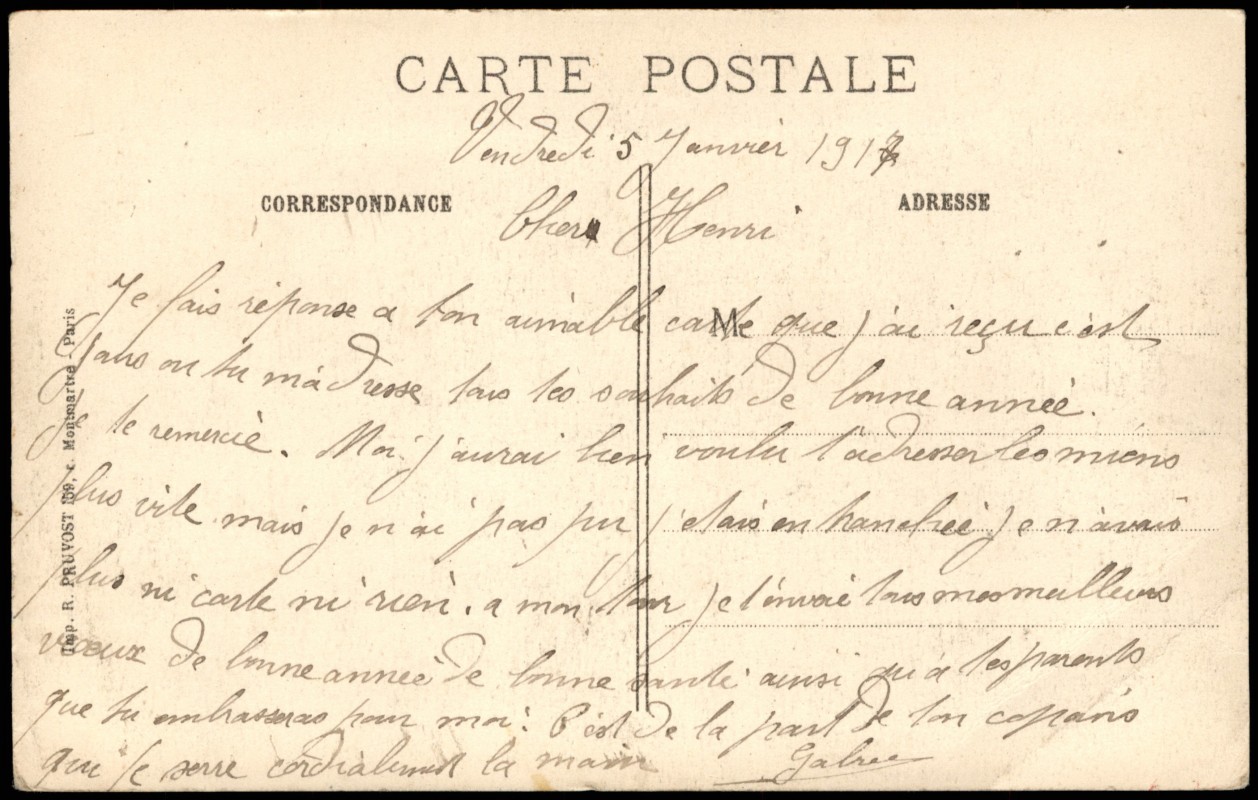 CARTE POSTALE
Vendredi 5 Janvier 1917
CORRESPONDANCE
ADRESSE
Cher Henri
M
Je fais réponse a ton aimable carte que j'ai reçu c'est
dans ou tu m'adresse tous tes souhaits de bonne année.
Je te remercie. Moi j'aurai bien voulu t'adresser les miens
plus vite mais je n'ai pas pu j'etais en tranchée je n'avais
plus ni carte ni rien. a mon tour je t'envoie tous mes meilleurs
vœux de bonne année de bonne santé ainsi qu'a tes parents
que tu embrasseras pour moi. C'est de la part de ton copains
qui te serre cordialement la main
Imp. R. PRUVOST 159, r. Montmartre Paris